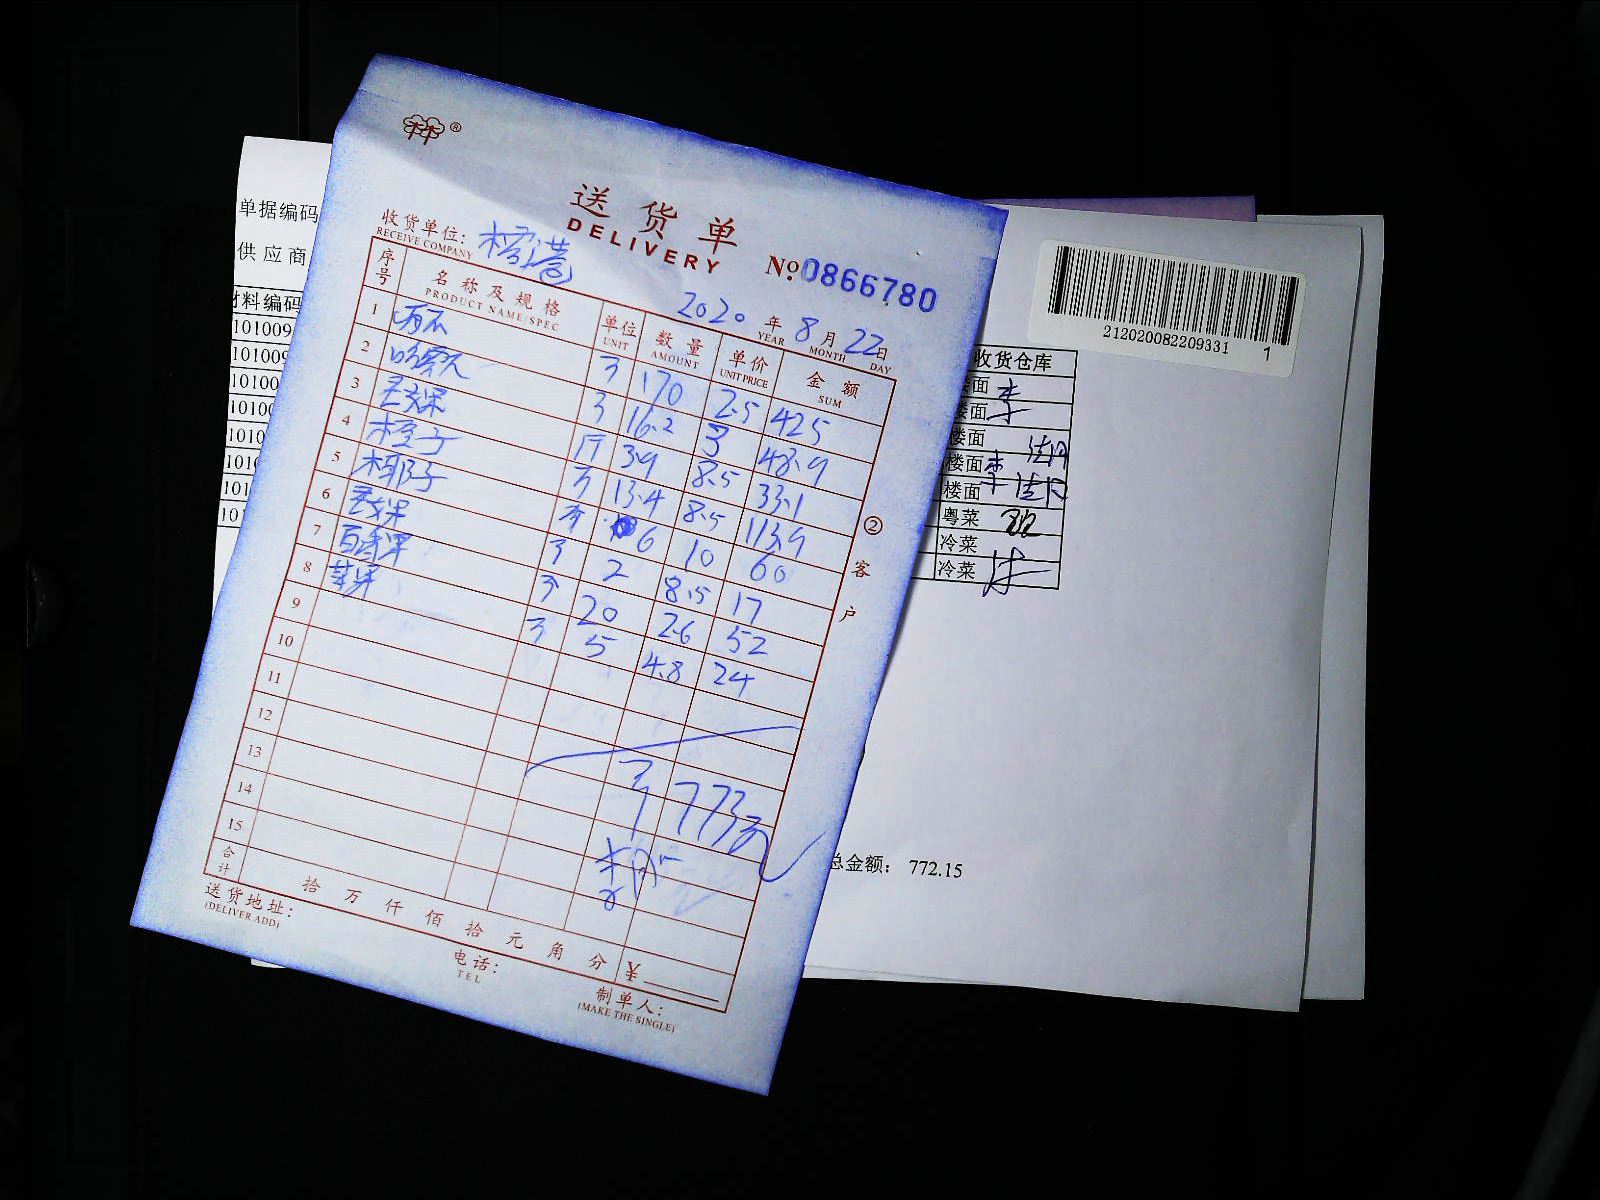 送货单
DELIVERY
收货单位: 榕港
RECEIVE COMPANY
№ 0866780
2020 年 8 月 22 日
YEAR MONTH DAY
序号 名称及规格 单位 数量 单价 金额
PRODUCT NAME/SPEC UNIT AMOUNT UNIT PRICE SUM
1 西瓜 170 2.5 425
2 哈密瓜 16.2 3 48.9
3 芒果 3.9 8.5 33.1
4 橙子 13.4 8.5 113.9
5 椰子 6 10 60
6 2 8.5 17
7 百香果 20 2.6 52
8 苹果 5 4.8 24
9
10
11
12
13 773元
14
15
合计 拾 万 仟 佰 拾 元 角 分 ¥
②客户
送货地址:
(DELIVER ADD)
电话:
TEL
制单人:
(MAKE THE SINGLE)
单据编码
供应商
材料编码
101009
101009
10100
10100
10100
1010
101
101
212020082209331 1
收货仓库
楼面 李
楼面 李
楼面
楼面 李
楼面 李
粤菜
冷菜
冷菜
总金额: 772.15